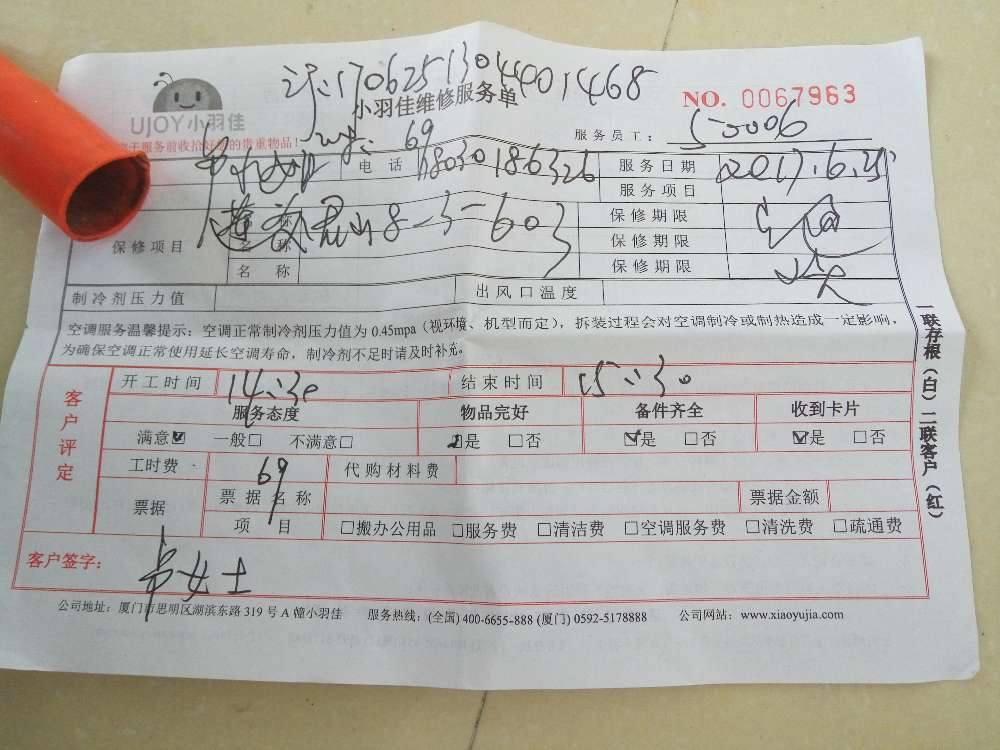 170625130440014468
小羽佳维修服务单
NO. 0067963
UJOY小羽佳
服务前收拾好您的贵重物品!
69
服务员工: 50006
电话 18030186326 服务日期 2017.6.25
服务项目
保修项目 名称 8-5-603 保修期限
名称 保修期限
名称 保修期限
制冷剂压力值 出风口温度
空调服务温馨提示:空调正常制冷剂压力值为0.45mpa(视环境、机型而定),拆装过程会对空调制冷或制热造成一定影响,
为确保空调正常使用延长空调寿命,制冷剂不足时请及时补充。
客户评定
开工时间 14:30 结束时间 15:30
服务态度 物品完好 备件齐全 收到卡片
满意☑ 一般□ 不满意□ ☑是 □否 ☑是 □否 ☑是 □否
工时费 69 代购材料费
票据 票据名称 票据金额
项目 □搬办公用品 □服务费 □清洁费 □空调服务费 □清洗费 □疏通费
客户签字: 卢女士
公司地址:厦门市思明区湖滨东路319号A幢小羽佳 服务热线:(全国) 400-6655-888 (厦门) 0592-5178888 公司网站:www.xiaoyujia.com
一联存根(白)二联客户(红)